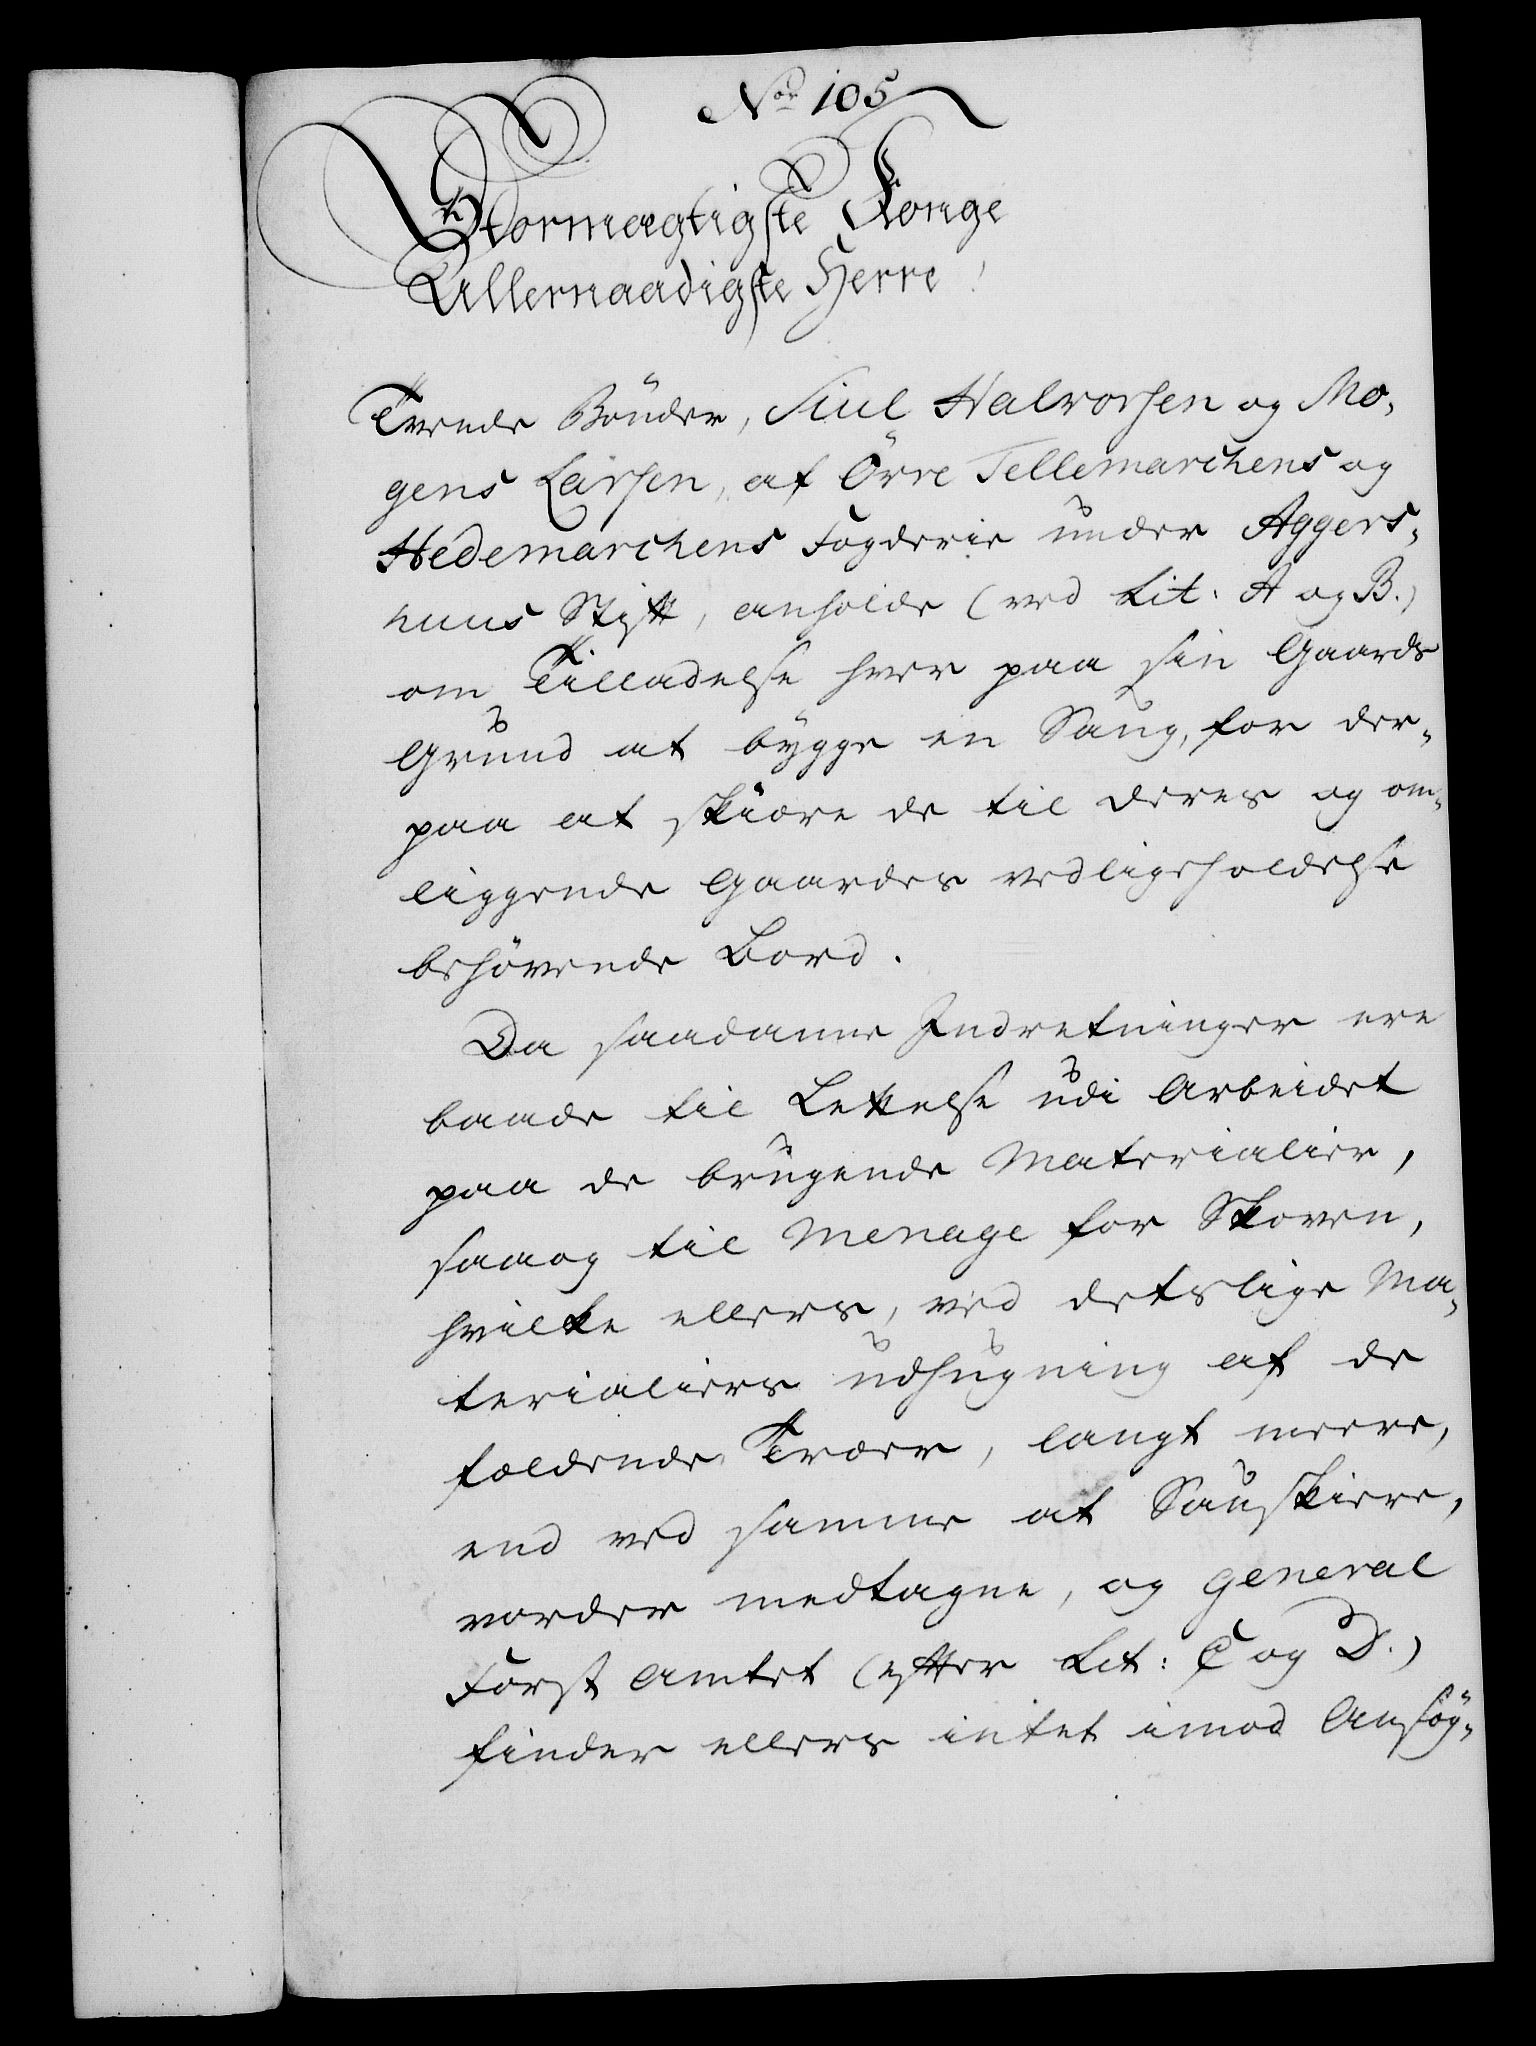 No 105
Stormægtigste Konge
Allernaadigste Herre!
Tvende Bönder, Siul Halvorsen og Mo-
gens Larsen, af Övre Tellemarchens og
Hedemarchens Fogderie under Aggers-
huus Stift, anholde (ved Lit: A og B.)
om Tilladelse hver paa sin Gaards
Grund at bÿgge en Saug, for der-
paa at skiære de til deres og om-
liggende Gaardes vedligeholdelse
behövende Bord.
Da saadanne Indretninger ere
baade til Lettelse udi Arbeidet
paa de brugende Materialier,
saaog til Menage for Skoven,
hvilke ellers, ved detslige Ma-
terialiers udhugning af de
faldende Træer, langt meere,
end ved samme at Saugskiere,
vorder medtagne, og General
Forst Amtet (efter Lit: C og D.)
finder ellers intet imod Ansög-